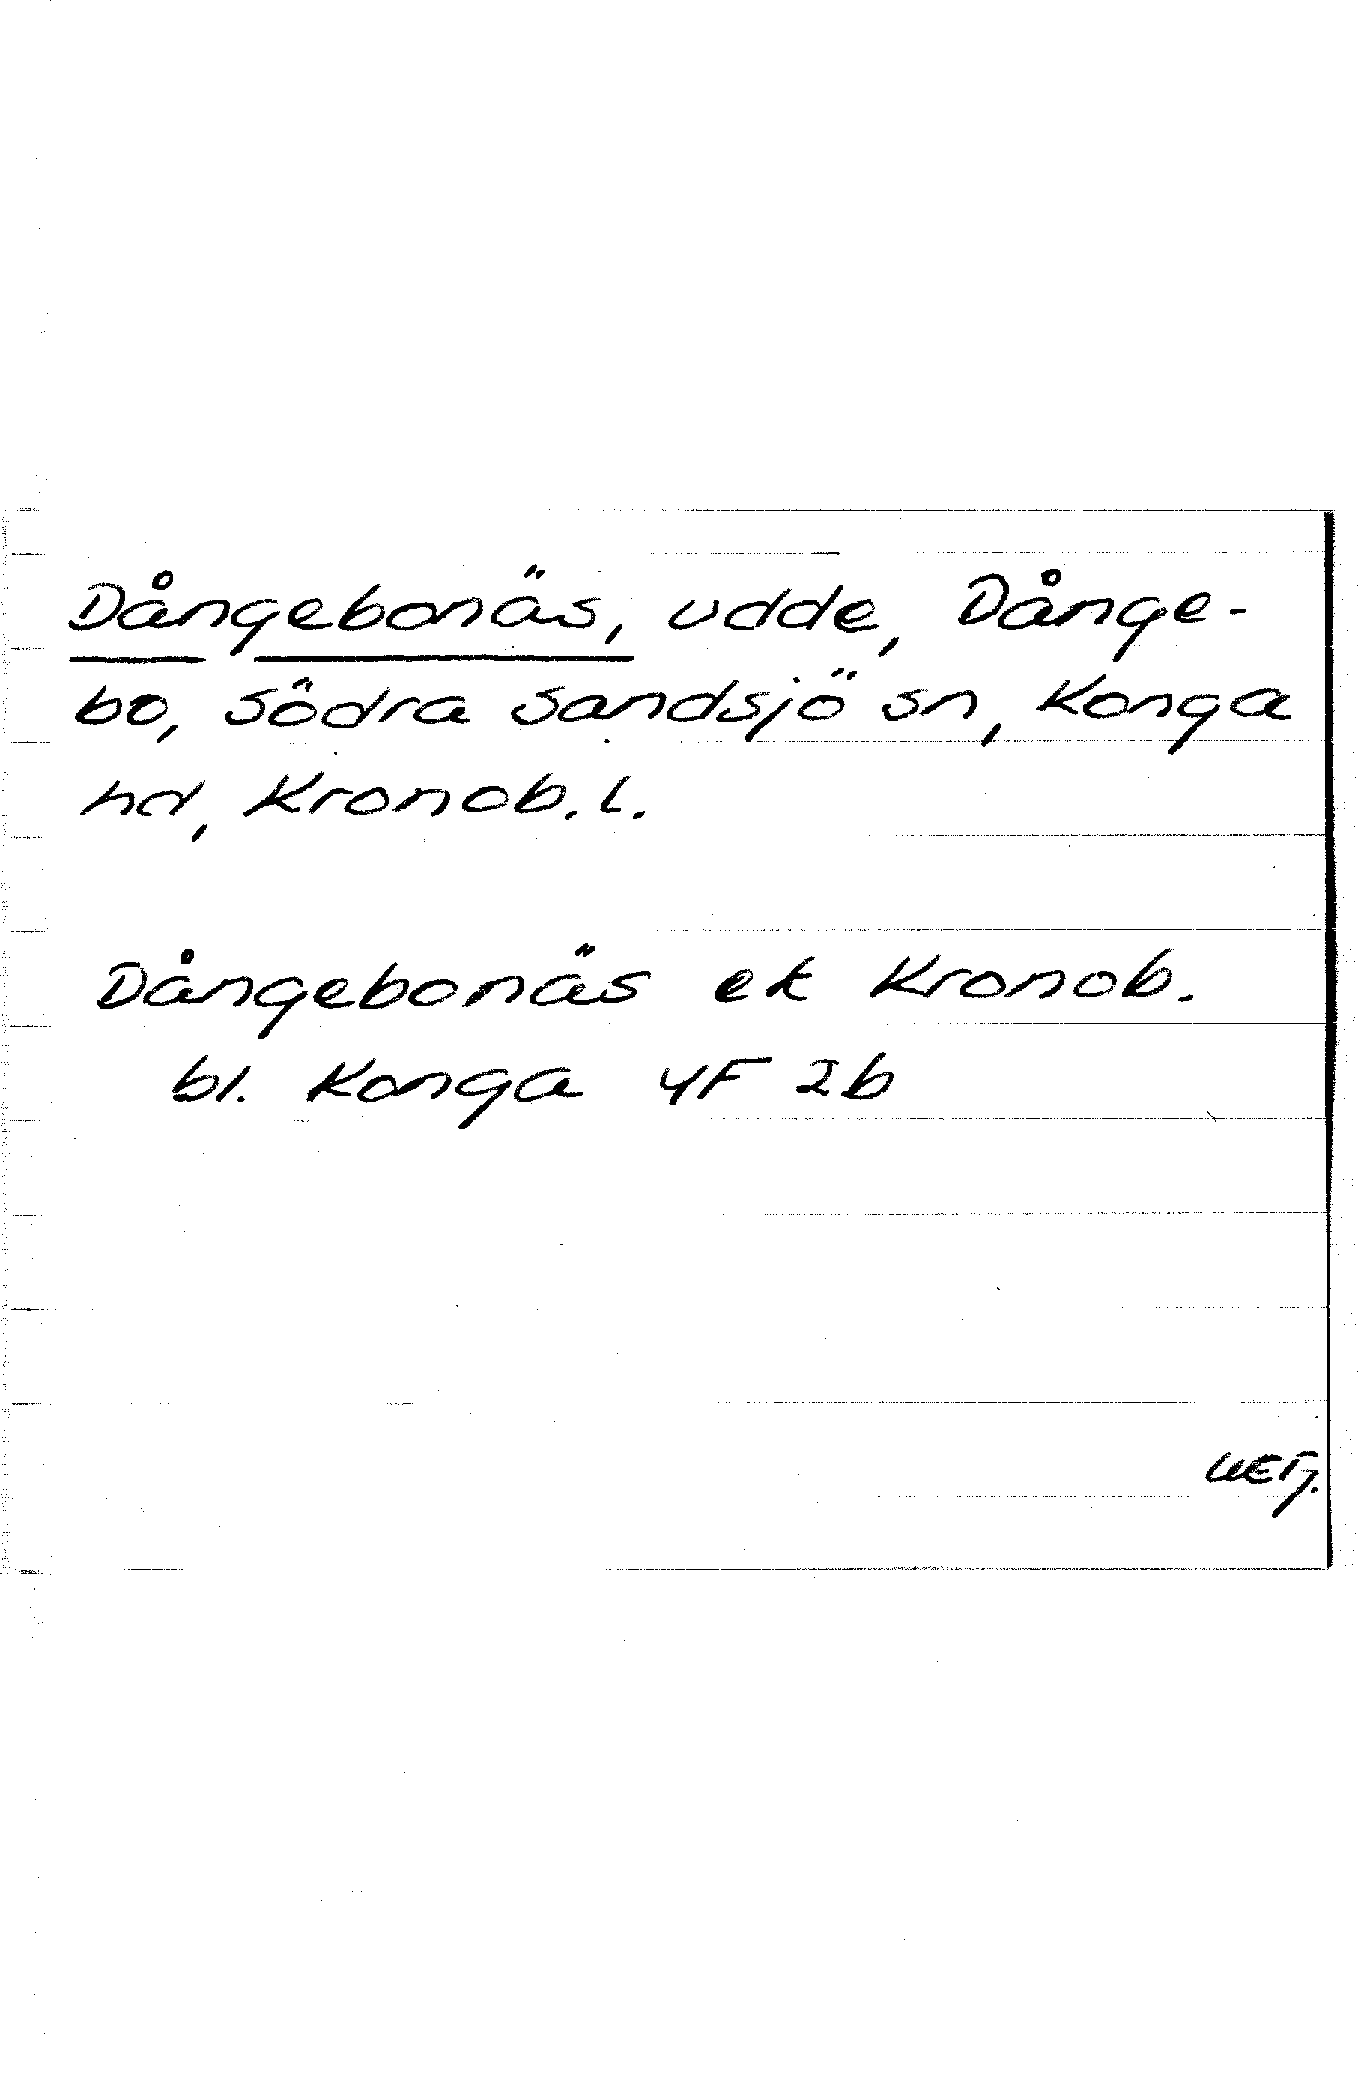 Dångebonäs, udde, Dånge-
bo, Södra Sandsjö sn, Konga
hd, Kronob. l.
Dångebonäs ek Kronob.
bl. Konga 4F 2b